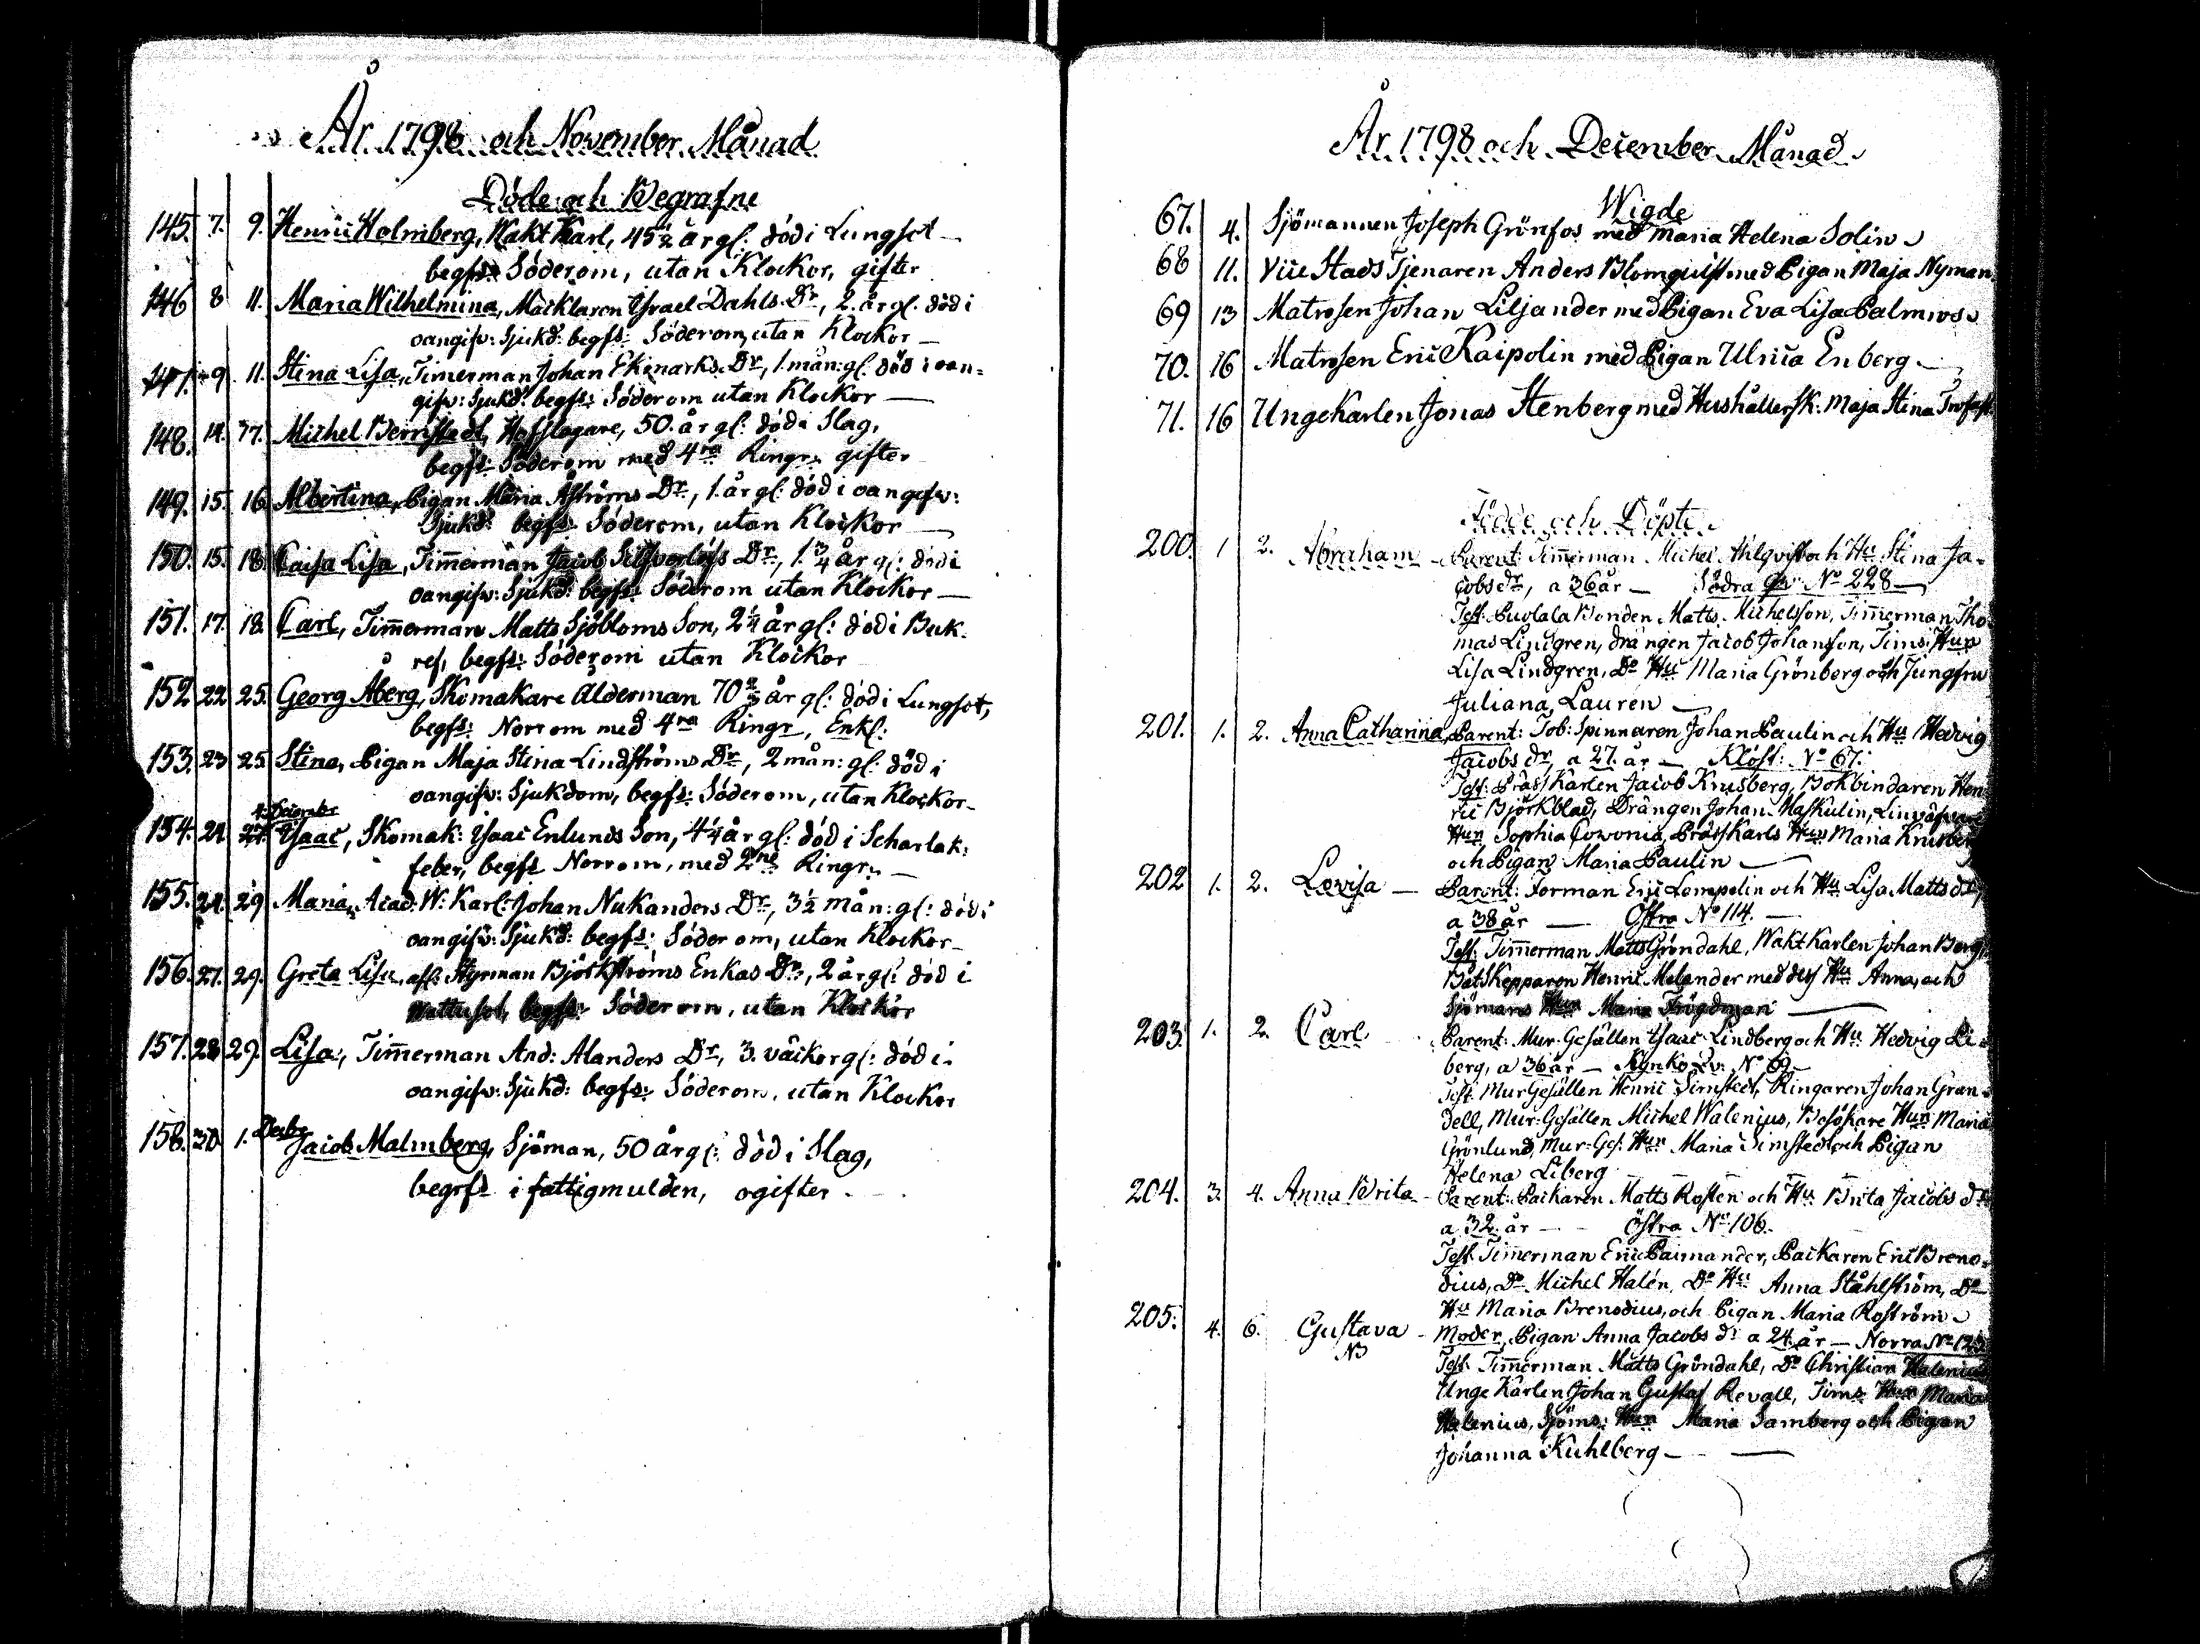 År 1798 och November Månad
Döde och Begrafne
145. 7. 9. Henric Holmberg, Wakt Karl, 45 1/2 år gl: död i Lungsot
begfs: Söderom, utan Klockor, gifter
146 8 11. Maria Wilhelmina, Mäcklaren Israel Dahls Dr, 2. år gl. död i
oangifw: Sjukd: begfs: Söderom, utan Klockor
147. 9. 11. Stina Lisa, Timerman Johan Ekmarks Dr, 1. mån: gl. död i oan-
gifw: Sjukd: begfs: Söderom utan Klockor
148. 14. 17. Michel Bernstedt, Hofslagare, 50. år gl: död i Slag,
begfs: Söderom med 4ra Ringr. gifter
149. 15. 16. Albertina, Pigan Maria Aströms Dr, 1. år gl: död i oangifw:
Sjukd: begfs: Söderom, utan Klockor
150. 15. 18. Caisa Lisa, Timerman Jacob Dr, 1. 3/4 år gl: död i
oangifw: Sjukd: begfs: Söderom utan Klockor
151. 17. 18. Carl, Timerman Matts Sjöbloms Son, 2 1/4 år gl: död i Buk-
ref, begfs: Söderom utan Klockor
152 22 25. Georg Åberg, Skomakare Ålderman 70 2/3 år gl: död i Lungsot,
begfs: Norrom med 4ra Ringr, Enkl:
153. 23 25. Stina, Pigan Maja Stina Lindströms Dr, 2 mån: gl: död i
oangifw: Sjukdom, begfs: Söderom, utan Klockor
4. Decembr
154. 24. Ysaac, Skomak: Ysaac Enlunds Son, 4 1/4 år gl: död i Scharlak:
feber, begfs Norrom, med 2ne Ringr.
155. 24. 29 Maria, Acad: W: Karl: Johan Nukanders Dr, 3 1/2 mån: gl: död i
oangifw: Sjukd: begfs: Söderom, utan Klockor
156. 27. 29. Greta Lisa, afl: Styrman Björkströms Enkas Dr, 2 år gl: död i
Wattusot, begfs: Söderom, utan Klockor
157. 28 29. Lisa, Timerman And: Alanders Dr, 3. väckor gl: död i
oangifw: Sjukd: begfs: Söderom, utan Klockor
158. 30 1. Decbr Jacob Malmberg, Sjöman, 50 år gl: död i Slag,
begrfs i fattigmulden, ogifter
År 1798 och December Månad
Wigde
67. 4. Sjömannen Joseph Grönfos med Maria Helena Solin
68 11. Vice Stads Tjenaren Anders Blomqvist med Pigan Maja Nyman
69 13 Matrosen Johan Liljander med Pigan Eva Lisa Palmros
70. 16 Matrosen Eric Kaipolin med Pigan Ulrica Enberg
71. 16 Unge Karlen Jonas Stenberg med Hushållersk: Maja Stina
Födde och Döpte
200. 1 2. Abraham Parent: Timerman Michel Ahlqvist och Hu: Stina Ja-
cobs dr, a 36 år — Södra Qv: No 228
Test: Puolala Bonden Matts Michelsson, Timerman Tho-
mas Lindgren, drängen Jacob Johansson, Tims: Hun
Lisa Lindgren, Do Hu: Maria Grönberg och Jungfru
Juliana Lauren
201. 1. 2. Anna Catharina, Parent: Tob: Spinnaren Johan Paulin och Hu Hedvig
Jacobs dr, a 27. år — Klöst: No 67.
Test: Präss Karlen Jacob Krusberg, Bokbindaren Hen-
ric Björkblad, Drängen Johan Maskulin,
Hun Sophia Präss Karls Hun Maria
och Pigan Maria Paulin
202 1. 2. Lovisa — Parent: Forman Eric Lompolin och Hu Lisa Matts dr
a 38 år — Östra No 114.
Test: Timerman Matts Gröndahl, Wakt Karlen Johan Berg
Båtskepparen Henric Melander med dess Hu Anna, och
Sjömans Hun Maria
203. 1. 2. Carl Parent: Mur-Gesällen Ysaac Lindberg och Hu Hedvig Li-
berg, a 36 år — Kyrko Qv: No 69
Test: Mur Gesällen Henric Simstedt, Ringaren Johan Gran-
dell, Mur: Gesällen Michel Walenius, Besökare Hun Maria
Grönlund, Mur-Ges: Hun Maria Simstedt, och Pigan
Helena Liberg
204. 3. 4. Anna Brita Parent: Packaren Matts Rosten och Hu Brita Jacobs dr
a 32. år — Östra No 106.
Test: Timerman Eric Paimander, Packaren Eric Breno-
dius, Do Michel Halén, Do Hu Anna Ståhlström, Do
Hu Maria Brenodius, och Pigan Maria Roström
205. 4. 6. Gustava Moder, Pigan Anna Jacobs dr a 24. år — Norra No
NB Test: Timerman Matts Gröndahl, Do Christian Halenius
Unge Karlen Johan Gustaf Revall, Tims Hun Maria
Halenius, Sjöms: Hun Maria Samberg och Pigan
Johanna Kuhlberg